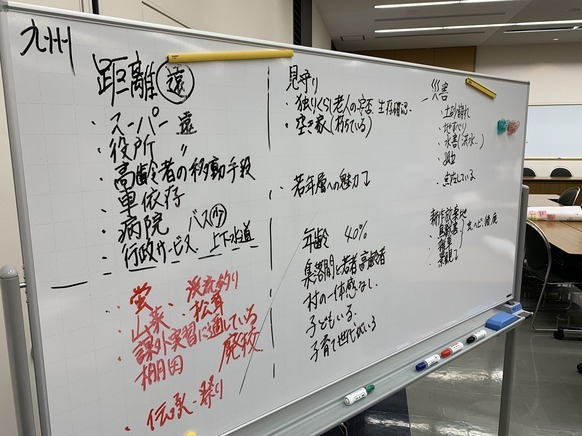 九州
距離 遠
・スーパー 遠
・役所 〃
・高齢者の移動手段
・車依存
・病院 バス
・行政サービス、上下水道
蛍、渓流釣り
山菜、松茸
課外実習に適している
棚田 廃校
・伝承・祭り
見守り
・独りぐらし老人の安否、生存確認
・空き家(朽ちている)
・若年層への魅力↓
年齢 40%
集落間と若者高齢者
村の一体感なし
子どもいる
子育て世代がいる
災害
・土砂崩れ
・地すべり
・水害(洪水
・孤立
・点在している
耕作放棄地